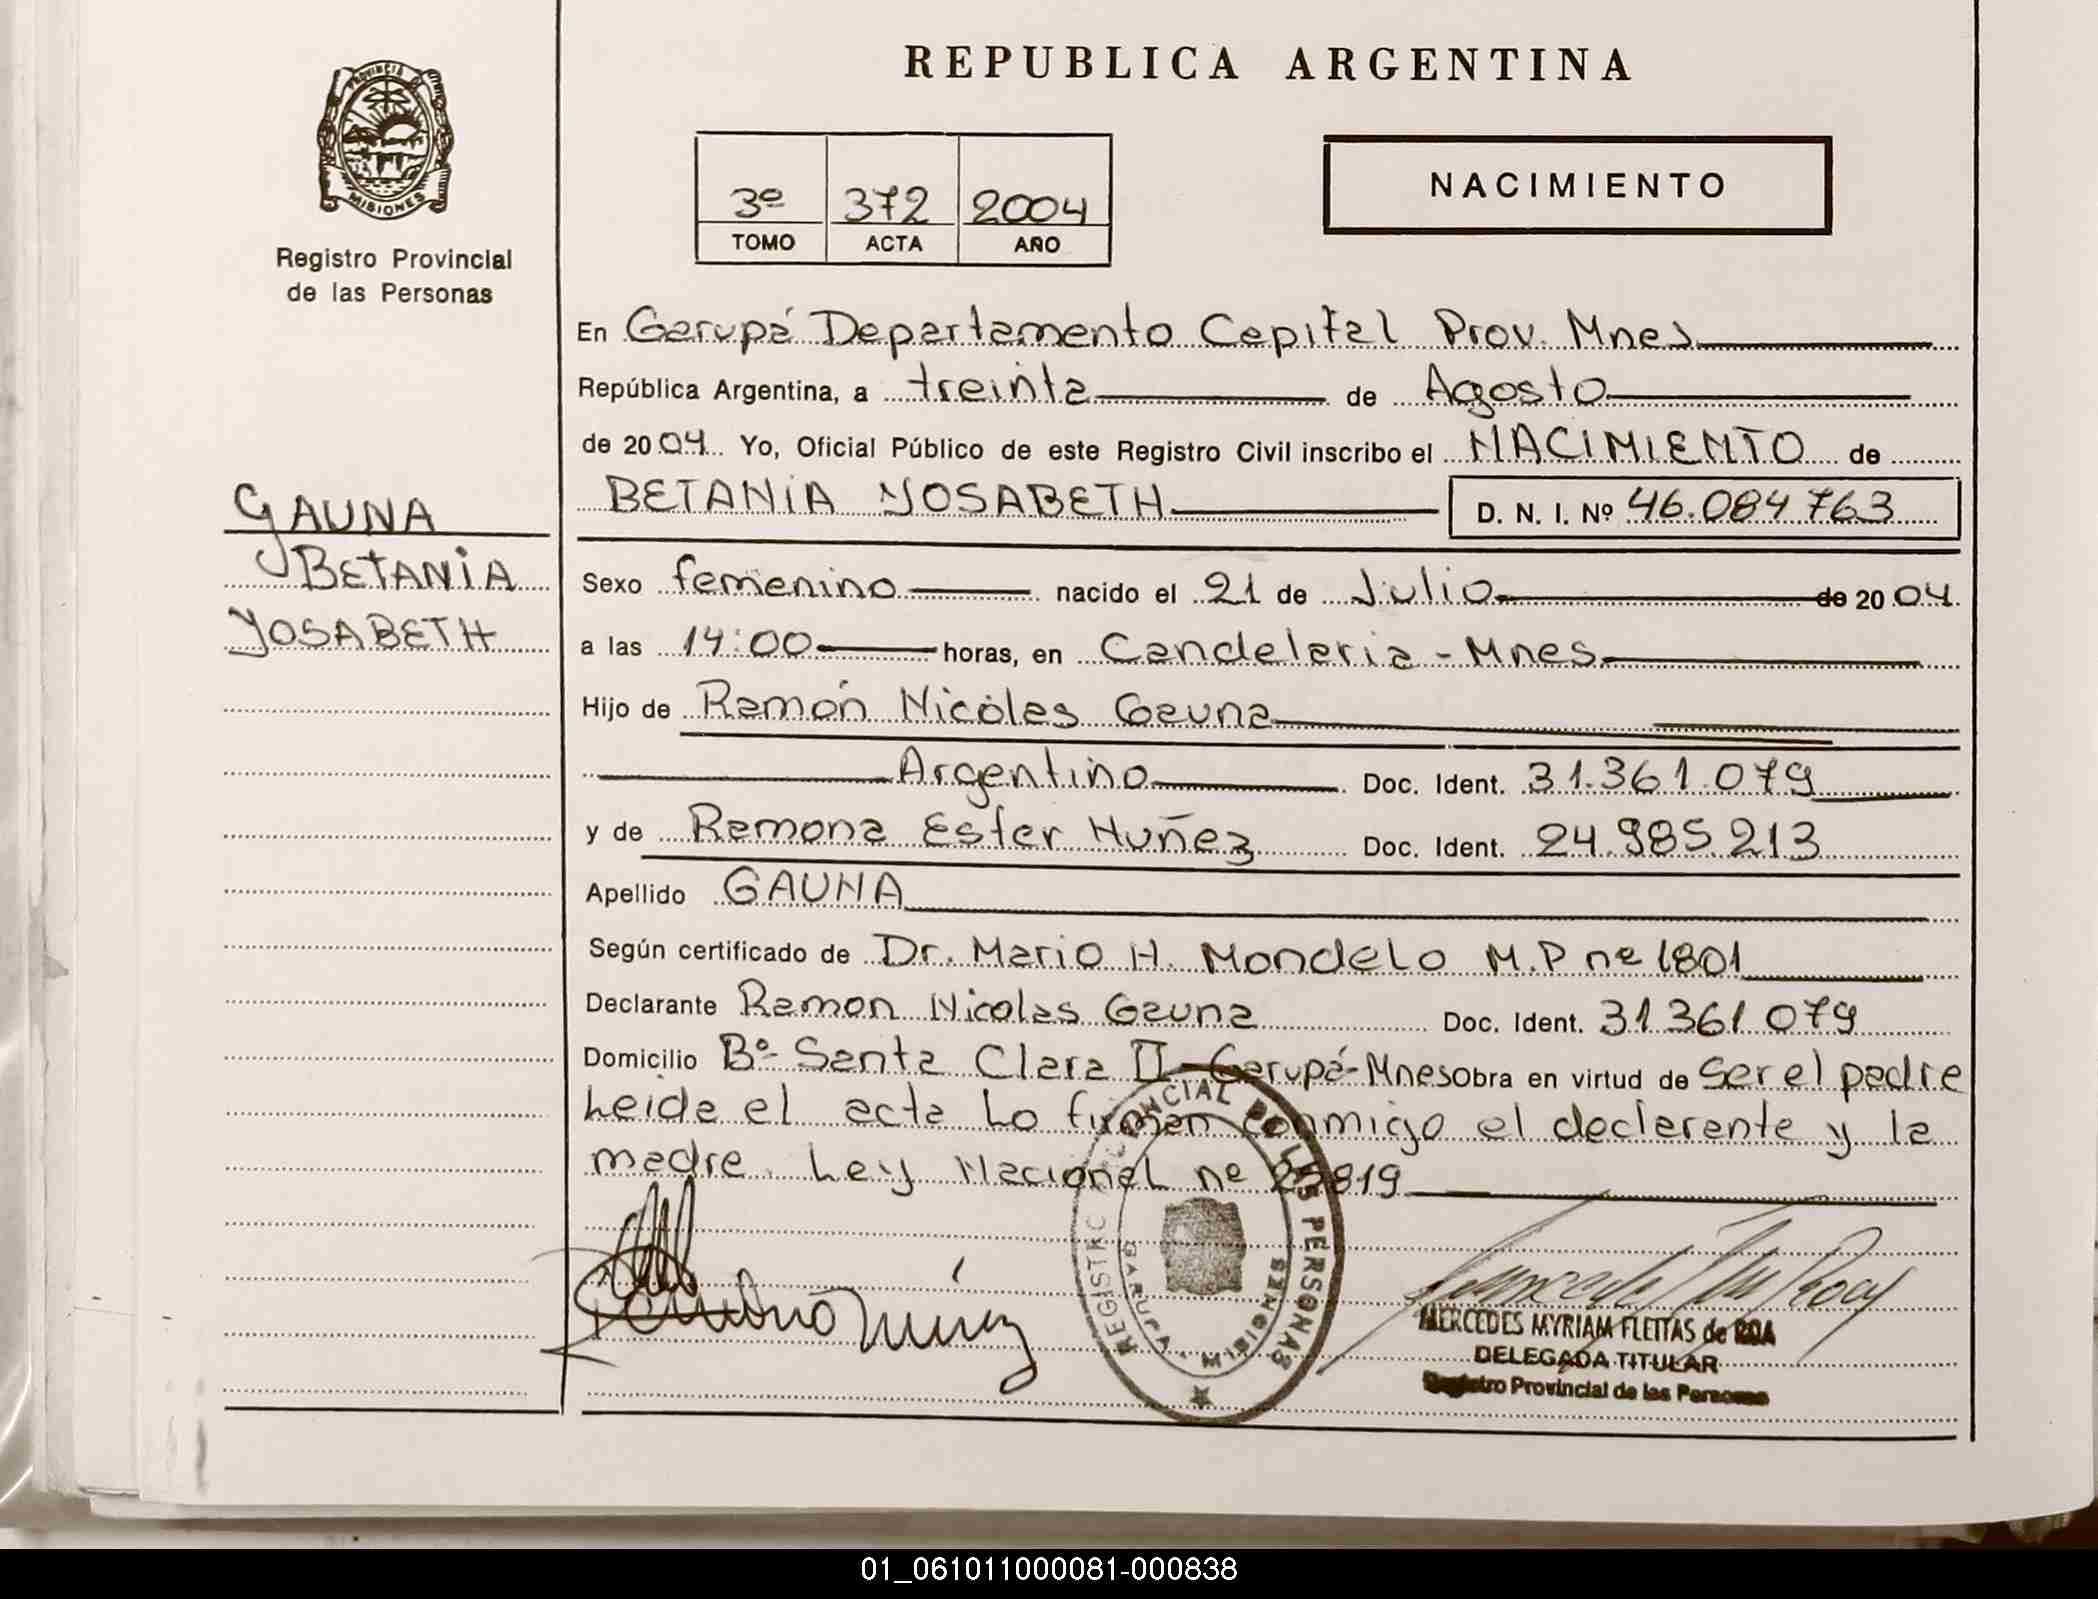 REPUBLICA ARGENTINA
PROVINCIA DE
MISIONES
Registro Provincial
de las Personas
3º 372 2004
TOMO ACTA AÑO
NACIMIENTO
En Garupá Departamento Capital Prov. Mnes
República Argentina, a treinta de Agosto
de 2004 Yo, Oficial Público de este Registro Civil inscribo el NACIMIENTO de
BETANIA YOSABETH D. N. I. Nº 46.084763
GAUNA
BETANIA
YOSABETH
Sexo femenino nacido el 21 de Julio de 2004
a las 14:00 horas, en Candelaria - Mnes
Hijo de Ramón Nicolas Gauna
Argentino Doc. Ident. 31.361.079
y de Ramona Ester Nuñez Doc. Ident. 24.985.213
Apellido GAUNA
Según certificado de Dr. Mario H. Mondelo M.P nº 1801
Declarante Ramon Nicolas Gauna Doc. Ident. 31361079
Domicilio Bº Santa Clara II - Garupá-Mnes Obra en virtud de Ser el padre
Leida el acta Lo firman conmigo el declarante y la
madre. Ley Nacional nº 25819
REGISTRO PROVINCIAL DE LAS PERSONAS
GARUPA - MISIONES
MERCEDES MYRIAM FLEITAS de ROA
DELEGADA TITULAR
Registro Provincial de las Personas
01_061011000081-000838